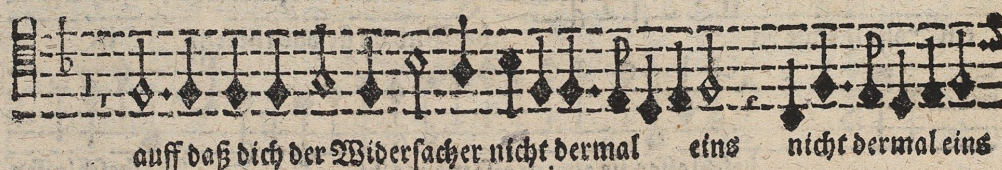 auff daß dich der Widerſacher nicht dermal eins nicht dermal eins